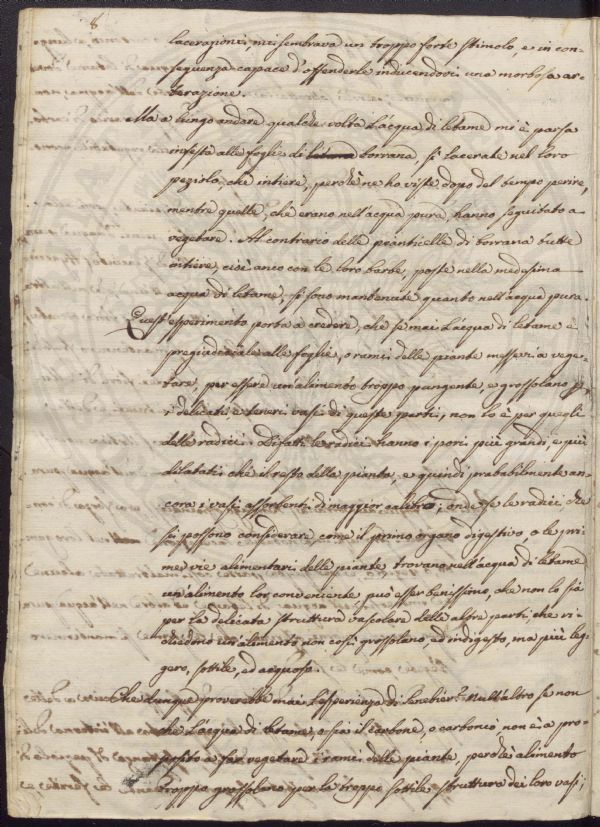 8
lacerazioni, mi sembrava un troppo forte stimolo, e in con-
seguenza capace d'offenderle inducendovi una morbosa al-
terazione.
Ma a lungo andare qualche volta l'acqua di letame mi è parsa
infesta alle foglie di borrana, sì lacerate nel loro
peziolo, che intiere, perchè ne ho viste dopo del tempo perire,
mentre quelle, che erano nell'acqua pura, hanno seguitato a
vegetare. Al contrario delle pianticelle di borrana tutte
intiere, cioè anco con le loro barbe, poste nella medesima
acqua di letame, si sono mantenute quanto nell'acqua pura.
Quest'esperimento porta a credere, che se mai l'acqua di letame è
pregiudiciale alle foglie, o rami delle piante messevi a vege-
tare, per essere un alimento troppo pungente, e grossolano p
i delicati, e teneri vasi di queste parti, non lo è per quegli
delle radici. Difatti le radici hanno i pori più grandi, e più
dilatati che il resto della pianta, e quindi probabilmente an-
cora i vasi assorbenti di maggior calibro; onde se le radici, che
si possono considerare, come il primo organo digestivo, o le pri-
me vie alimentari delle piante trovano nell'acqua di letame
un alimento lor conveniente, può esser benissimo, che non lo sia
per la delicata struttura vascolare delle altre parti, che ri-
chiedono un alimento non così grossolano, ed indigesto, ma più leg-
gero, sottile, ed acquoso.
Che dunque proverebbe mai l'esperienza di Senebier? Null'altro se non
che l'acqua di letame, o sia il carbone, o carbonio non è a pro-
posito a far vegetare i rami delle piante, perchè alimento
troppo grossolano per la troppo sottile struttura dei loro vasi;